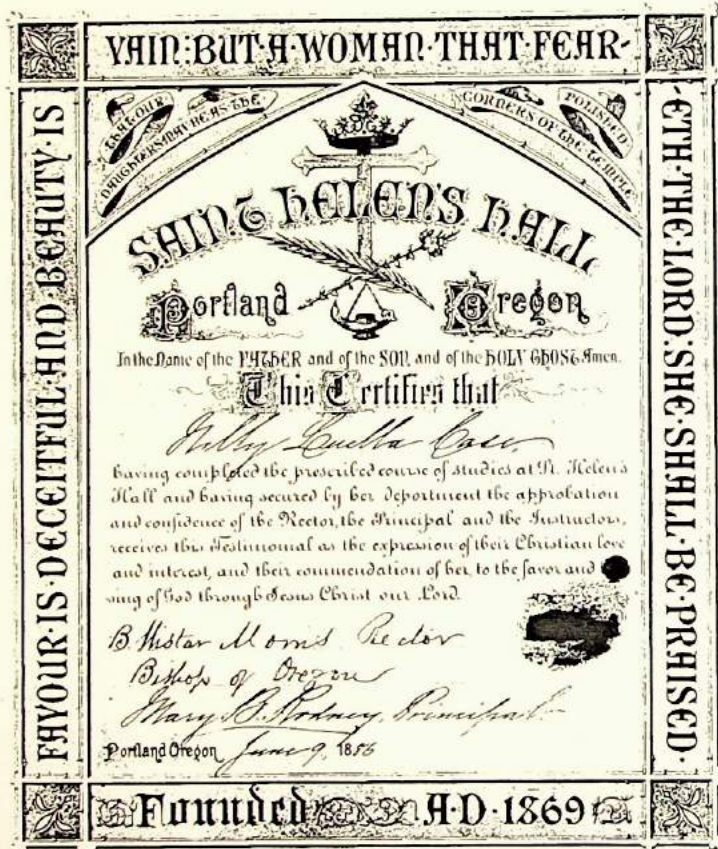 FAVOUR·IS·DECEITFUL·AND·BEAUTY·IS
VAIN:BUT·A·WOMAN·THAT·FEAR-
-ETH·THE·LORD:SHE·SHALL·BE·PRAISED·
THAT·OUR
DAUGHTERS·MAY·BE·AS·THE
POLISHED
CORNERS·OF·THE·TEMPLE
SAINT HELEN'S HALL
Portland Oregon
In the Name of the FATHER and of the SON, and of the HOLY GHOST. Amen.
This Certifies that
Luella Case
having completed the prescribed course of studies at St. Helen's
Hall and having secured by her deportment the approbation
and confidence of the Rector, the Principal and the Instructors,
receives this Testimonial as the expression of their Christian love
and interest, and their commendation of her, to the favor and
sing of God through Jesus Christ our Lord.
B. Wistar Morris Rector
Bishop of Oregon
Mary B. Rodney, Principal
Portland Oregon June 9, 18
Founded A·D·1869